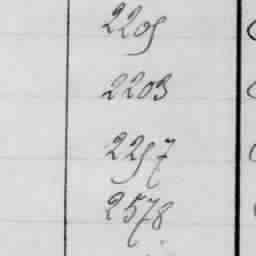 2205
2203
2257
2578